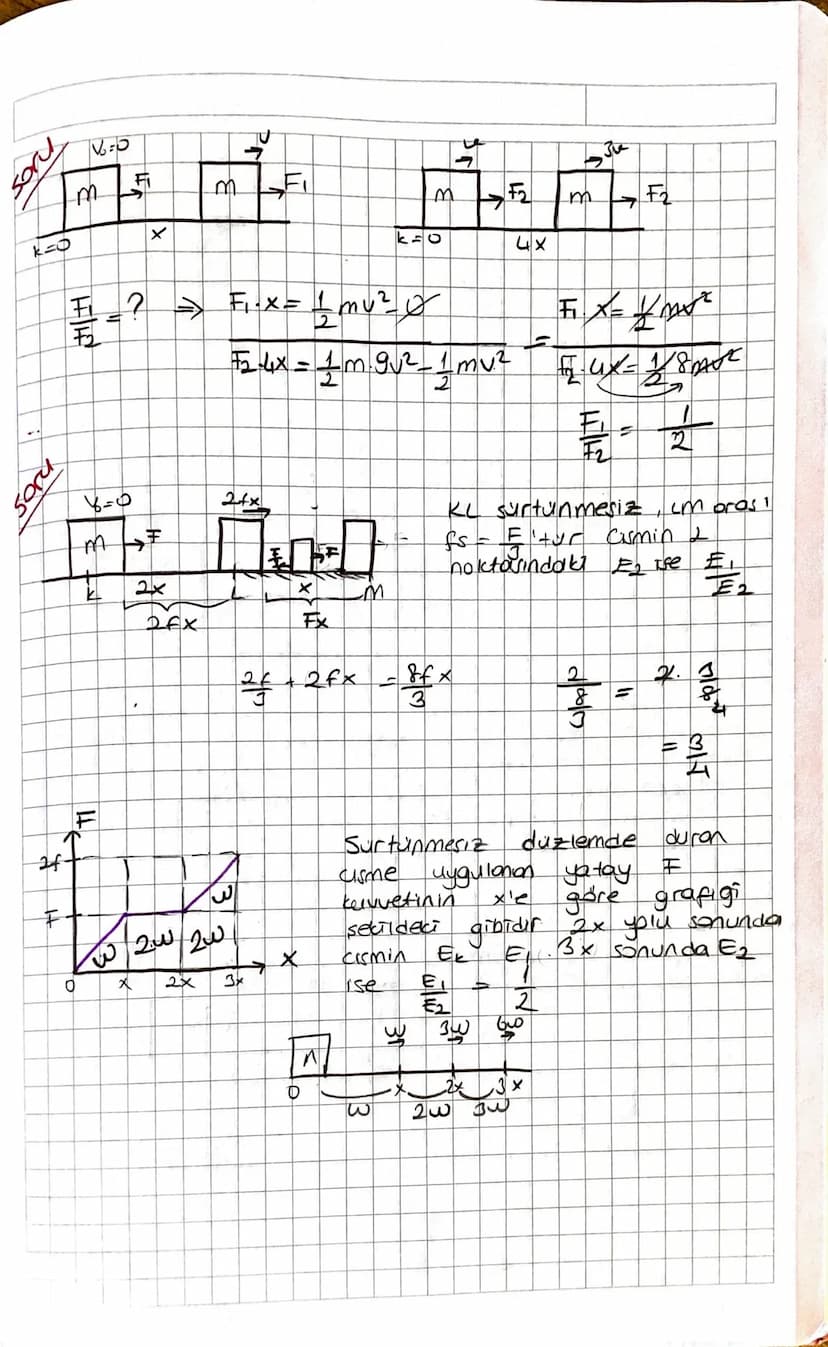 soru
V₀=0 v v 3v
m F₁ m F₁ m F₂ m F₂
k=0 x k=0 4x
F₁/F₂ = ? ⇒ F₁.x = 1/2 mv² - 0 F₁ x = 1/2 mv²
F₂.4x = 1/2 m.9v² - 1/2 mv² = F₂.4x = 1/2 8mv²
F₁/F₂ = 1/2
soru
V₀=0 2fx
m F F
k 2x L x m
2fx Fx
KL sürtünmesiz, Lm arası
fs = F/3'tür cismin L
noktasındaki E₂ ise E₁/E₂
2f/3 + 2fx = 8f/3 x
2/(8/3) = 2.3/8
= 3/4
F
2f
F
w 2w 2w w
0 x 2x 3x x
Sürtünmesiz düzlemde duran
cisme uygulanan yatay F
kuvvetinin x'e göre grafiği
şekildeki gibidir 2x yolu sonunda
cismin Ek E₁. 3x sonunda E₂
ise E₁/E₂ = 1/2
w 3w 6w
0 x 2x 3x
w 2w 3w